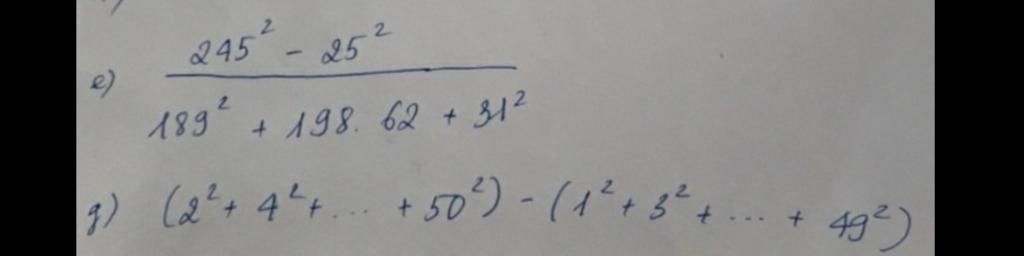 e) \frac{245^2 - 25^2}{189^2 + 198 . 62 + 31^2}
g) (2^2 + 4^2 + ... + 50^2) - (1^2 + 3^2 + ... + 49^2)